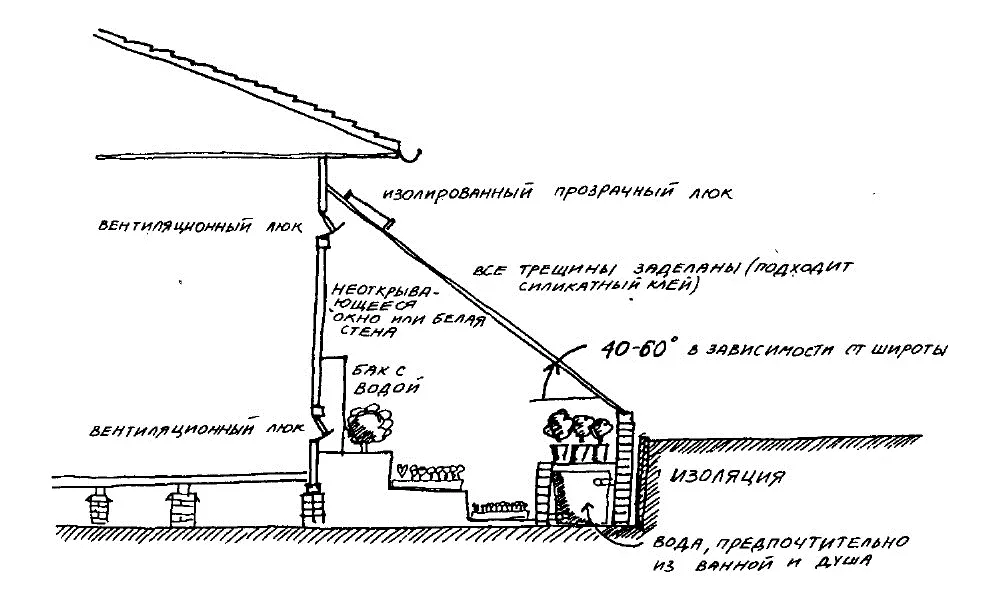 ИЗОЛИРОВАННЫЙ ПРОЗРАЧНЫЙ ЛЮК
ВЕНТИЛЯЦИОННЫЙ ЛЮК
ВСЕ ТРЕЩИНЫ ЗАДЕЛАНЫ (ПОДХОДИТ
СИЛИКАТНЫЙ КЛЕЙ)
НЕОТКРЫВА-
ЮЩЕЕСЯ
ОКНО ИЛИ БЕЛАЯ
СТЕНА
40-60° В ЗАВИСИМОСТИ ОТ ШИРОТЫ
БАК С
ВОДОЙ
ВЕНТИЛЯЦИОННЫЙ ЛЮК
ИЗОЛЯЦИЯ
ВОДА, ПРЕДПОЧТИТЕЛЬНО
ИЗ ВАННОЙ И ДУША